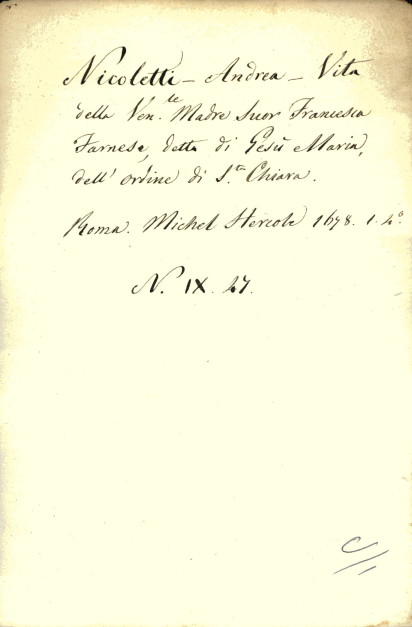 Nicoletti – Andrea – Vita
della Ven.le Madre Suor Francesca
Farnese, detta di Gesù Maria,
dell' ordine di S.ta Chiara.
Roma. Michel Hercole 1678. 1. 4.o
N. IX. 47.